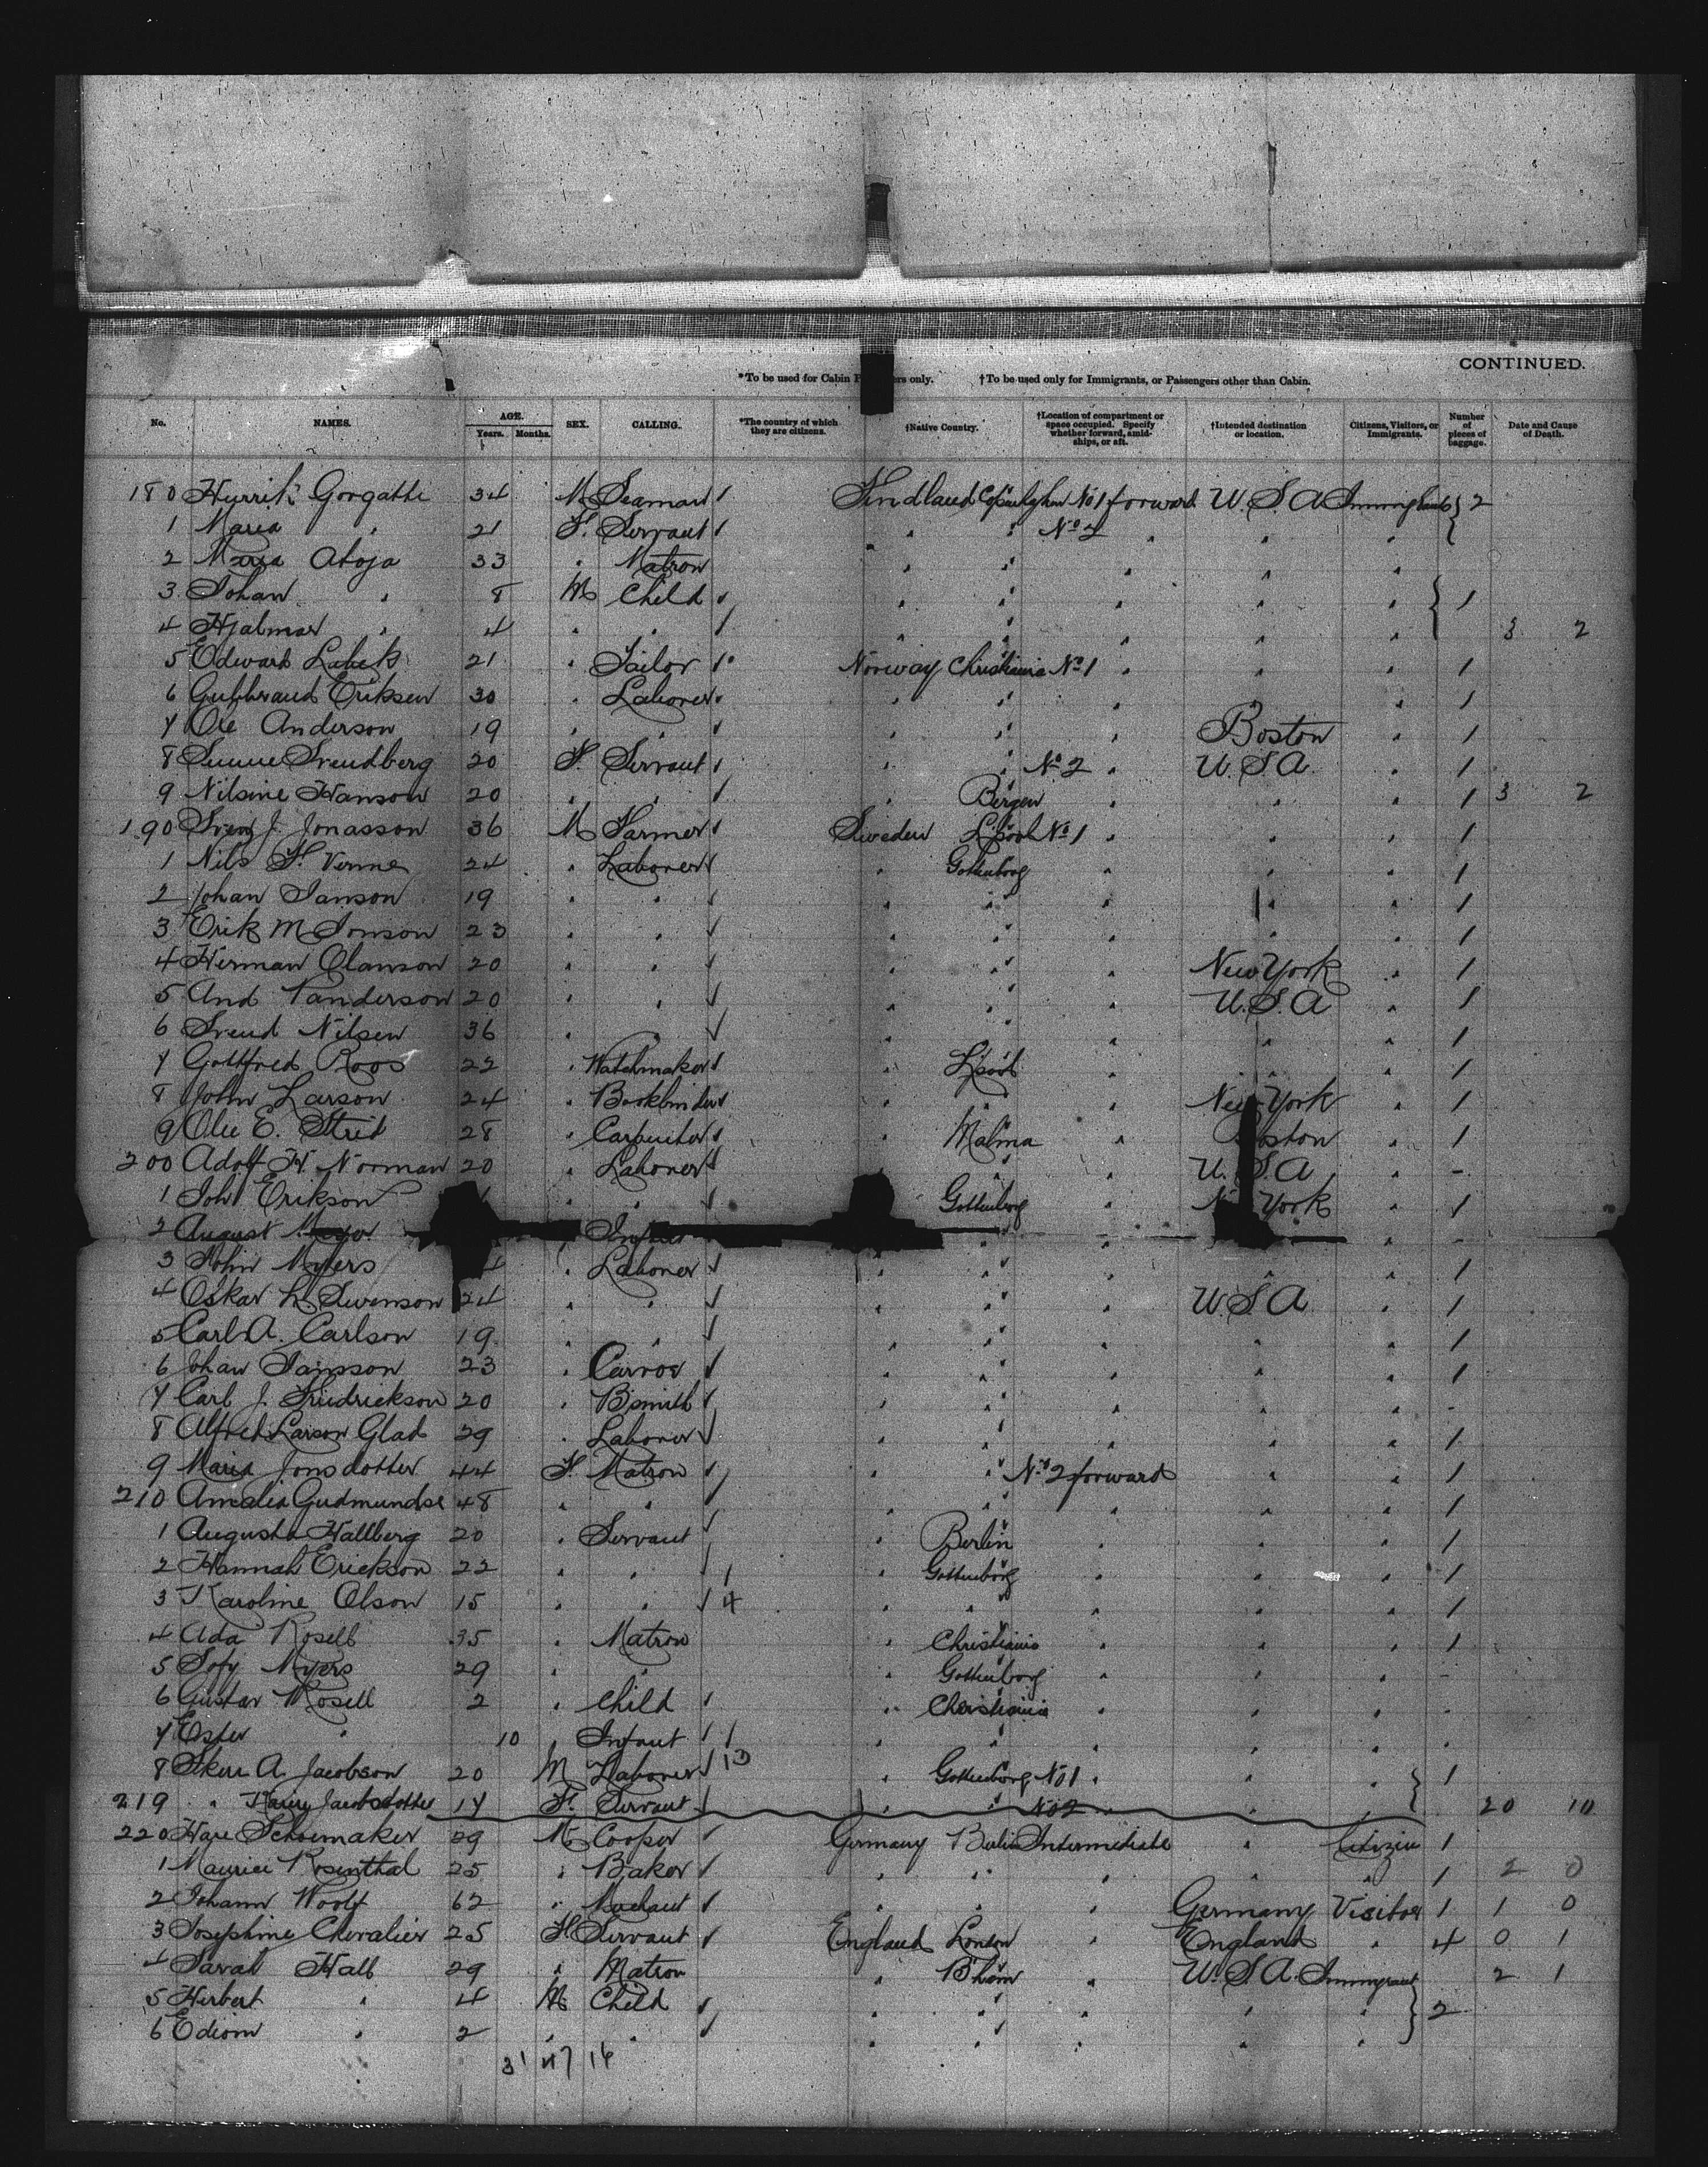 CONTINUED.
*To be used for Cabin P ers only. †To be used only for Immigrants, or Passengers other than Cabin.
No. NAMES. AGE. Years. Months. SEX. CALLING. *The country of which they are citizens. †Native Country. †Location of compartment or space occupied. Specify whether forward, amidships, or aft. †Intended destination or location. Citizens, Visitors, or Immigrants. Number of pieces of baggage. Date and Cause of Death.
180 34 M Seaman Findland No 1 forward U.S.A 2
1 Maria " 21 F. Servant " " No 2 " " "
2 Maria Atoja 33 " Matron " " " " "
3 Johan " 8 M Child " " " " " 1
4 Hjalmar " 4 " " " " " " " 3 2
5 Edward 21 " Tailor Norway Christiania No 1 " " " 1
6 Eriksen 30 " Laborer " " " " " 1
7 Ole Anderson 19 " " " " " Boston " 1
8 Svendberg 20 F. Servant " " No 2 " U.S.A. " 1
9 Nilsine Hanson 20 " " " Bergen " " " 1 3 2
190 Sven J. Jonasson 36 M Farmer Sweden L'pool No 1 " " " 1
1 Nils F. Verme 24 " Laborer " Gottenborg " " " 1
2 Johan Janson 19 " " " " " " " 1
3 Erik M Jonson 23 " " " " " " " 1
4 Herman Olanson 20 " " " " " New York " 1
5 And Vanderson 20 " " " " " U.S.A " 1
6 Svend Nilsen 36 " " " " " " " 1
7 Gottfred Roos 22 " Watchmaker " L'pool " " " 1
8 John Larson 24 " Bookbinder " " " New York " 1
9 Ole E. Strid 28 " Carpenter " Malma " Boston " 1
200 Adolf H. Norman 20 " Laborer " " " U.S.A " -
1 Joh Erikson " " " Gottenborg " N York " 1
2 August " Infant " " " " -
3 John Myers 4 " Laborer " " " " " 1
4 Oskar L. Swenson 24 " " " " " U.S.A " 1
5 Carl A. Carlson 19 " " " " " " " 1
6 Johan Jansson 23 " Carver " " " " " 1
7 Carl J. Fridrickson 20 " B'smith " " " " " -
8 Alfred Larson Glad 29 " Laborer " " " " " 1
9 Maria Jonsdotter 44 F. Matron " " No 2 forward " " 1
210 Amalia Gudmundse 48 " " " " " " " 1
1 Augusta Hallberg 20 " Servant " Berlin " " " 1
2 Hannah Erickson 22 " " 1 " Gottenborg " " " 1
3 Karoline Olson 15 " " 4 " " " " " 1
4 Ada Rosell 35 " Matron " Christiania " " " 1
5 Sofy Myers 29 " " " Gottenborg " " " -
6 Gustav Rosell 2 " Child " Christiania " " " -
7 Ester " 10 " Infant 1 " " " " " -
8 A. Jacobson 20 M Laborer 13 " Gottenborg No 1 " " " 1
219 " Jacobsdotter 17 F. Servant " " No 2 " " " 20 10
220 Schoemaker 29 M Cooper Germany Berlin Intermediate " Citizen 1
1 Maurice Rosenthal 25 " Baker " " " " " 1 2 0
2 Johann Woolf 62 " " " " Germany Visitor 1 1 0
3 Josephine Chevalier 25 F Servant England London " England " 4 0 1
4 Sarah Hall 29 " Matron " B'ham " U.S.A. Immigrant 2 1
5 Herbert " 4 M Child " " " " " 2
6 " 2 " " " " " " "
31 47 16